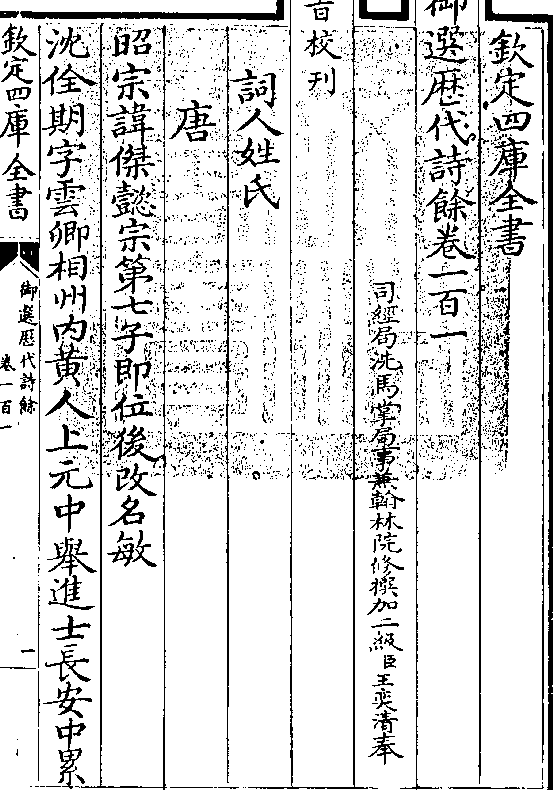 欽定四庫全書
御選歴代詩餘卷一百一
司經局洗馬掌局事兼翰林院修撰加二級臣王奕清奉
旨校刊
詞人姓氏
唐
昭宗諱傑懿宗第七子即位後改名敏
沈佺期字雲卿相州内黄人上元中舉進士長安中累
欽定四庫全書
御選歴代詩餘
卷一百一
一